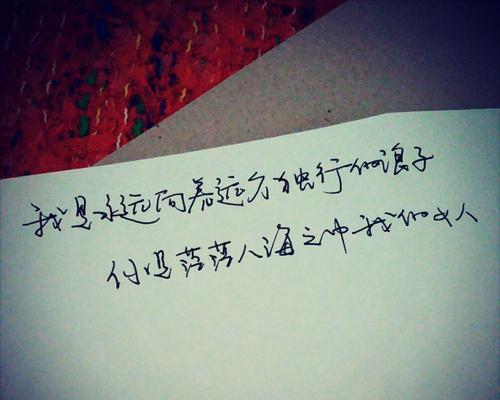 我是永远向着远方独行的浪子
你是茫茫人海之中我的女人